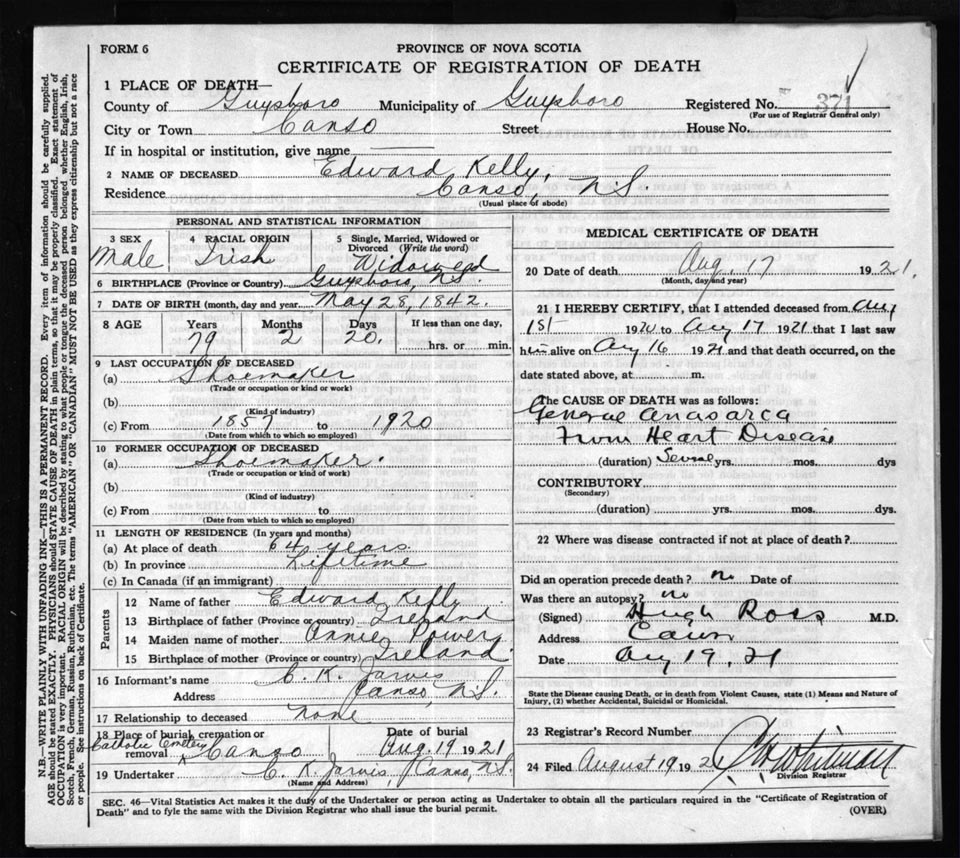 FORM 6
PROVINCE OF NOVA SCOTIA
CERTIFICATE OF REGISTRATION OF DEATH
1 PLACE OF DEATH—
County of Guysboro Municipality of Guysboro Registered No. 371
(For use of Registrar General only)
City or Town Canso Street House No.
If in hospital or institution, give name
2 NAME OF DECEASED Edward Kelly,
Residence Canso, NS
(Usual place of abode)
PERSONAL AND STATISTICAL INFORMATION
3 SEX Male
4 RACIAL ORIGIN Irish
5 Single, Married, Widowed or Divorced (Write the word) Widowed
6 BIRTHPLACE (Province or Country) Guysboro, N.S.
7 DATE OF BIRTH (month, day and year May 28, 1842.
8 AGE Years Months Days If less than one day,
79 2 20. hrs. or min.
9 LAST OCCUPATION OF DECEASED
(a) Shoemaker
(Trade or occupation or kind or work)
(b)
(Kind of industry)
(c) From 1857 to 1920
(Date from which to which so employed)
10 FORMER OCCUPATION OF DECEASED
(a) Shoemaker.
(Trade or occupation or kind of work)
(b)
(Kind of industry)
(c) From to
(Date from which to which so employed)
11 LENGTH OF RESIDENCE (In years and months)
(a) At place of death 64 years
(b) In province Lifetime
(c) In Canada (if an immigrant)
Parents
12 Name of father Edward Kelly
13 Birthplace of father (Province or country) Ireland
14 Maiden name of mother Annie Powers
15 Birthplace of mother (Province or country) Ireland.
16 Informant's name C. K. Jarvis
Address Canso, N.S.
17 Relationship to deceased None
18 Place of burial, cremation or removal Catholic Cemetery Canso
Date of burial Aug. 19 1921
19 Undertaker C. K. Jarvis, Canso, N.S.
(Name and Address)
MEDICAL CERTIFICATE OF DEATH
20 Date of death Aug. 17 1921.
(Month, day and year)
21 I HEREBY CERTIFY, that I attended deceased from Aug
1st 1920 to Aug 17 1921 that I last saw
him alive on Aug 16 1921 and that death occurred, on the
date stated above, at m.
The CAUSE OF DEATH was as follows:
General Anasarca
From Heart Disease
(duration) yrs. mos. dys
CONTRIBUTORY
(Secondary)
(duration) yrs. mos. dys.
22 Where was disease contracted if not at place of death?
Did an operation precede death? no Date of
Was there an autopsy? no
(Signed) Hugh Ross M.D.
Address
Date Aug 19. 21
State the Disease causing Death, or in death from Violent Causes, state (1) Means and Nature of
Injury, (2) whether Accidental, Suicidal or Homicidal.
23 Registrar's Record Number
24 Filed August 19 192
Division Registrar
SEC. 46—Vital Statistics Act makes it the duty of the Undertaker or person acting as Undertaker to obtain all the particulars required in the "Certificate of Registration of
Death" and to fyle the same with the Division Registrar who shall issue the burial permit. (OVER)
N.B.—WRITE PLAINLY WITH UNFADING INK—THIS IS A PERMANENT RECORD. Every item of information should be carefully supplied.
AGE should be stated EXACTLY. PHYSICIANS should STATE CAUSE OF DEATH in plain terms, so that it may be properly classified. Exact statement of
OCCUPATION is very important. RACIAL ORIGIN will be described by stating to what people or tongue the deceased person belonged whether English, Irish,
Scotch, French, German, Russian, Ruthenian, etc. The terms "AMERICAN" OR "CANADIAN" MUST NOT BE USED as they express citizenship but not a race
or people. See instructions on back of Certificate.